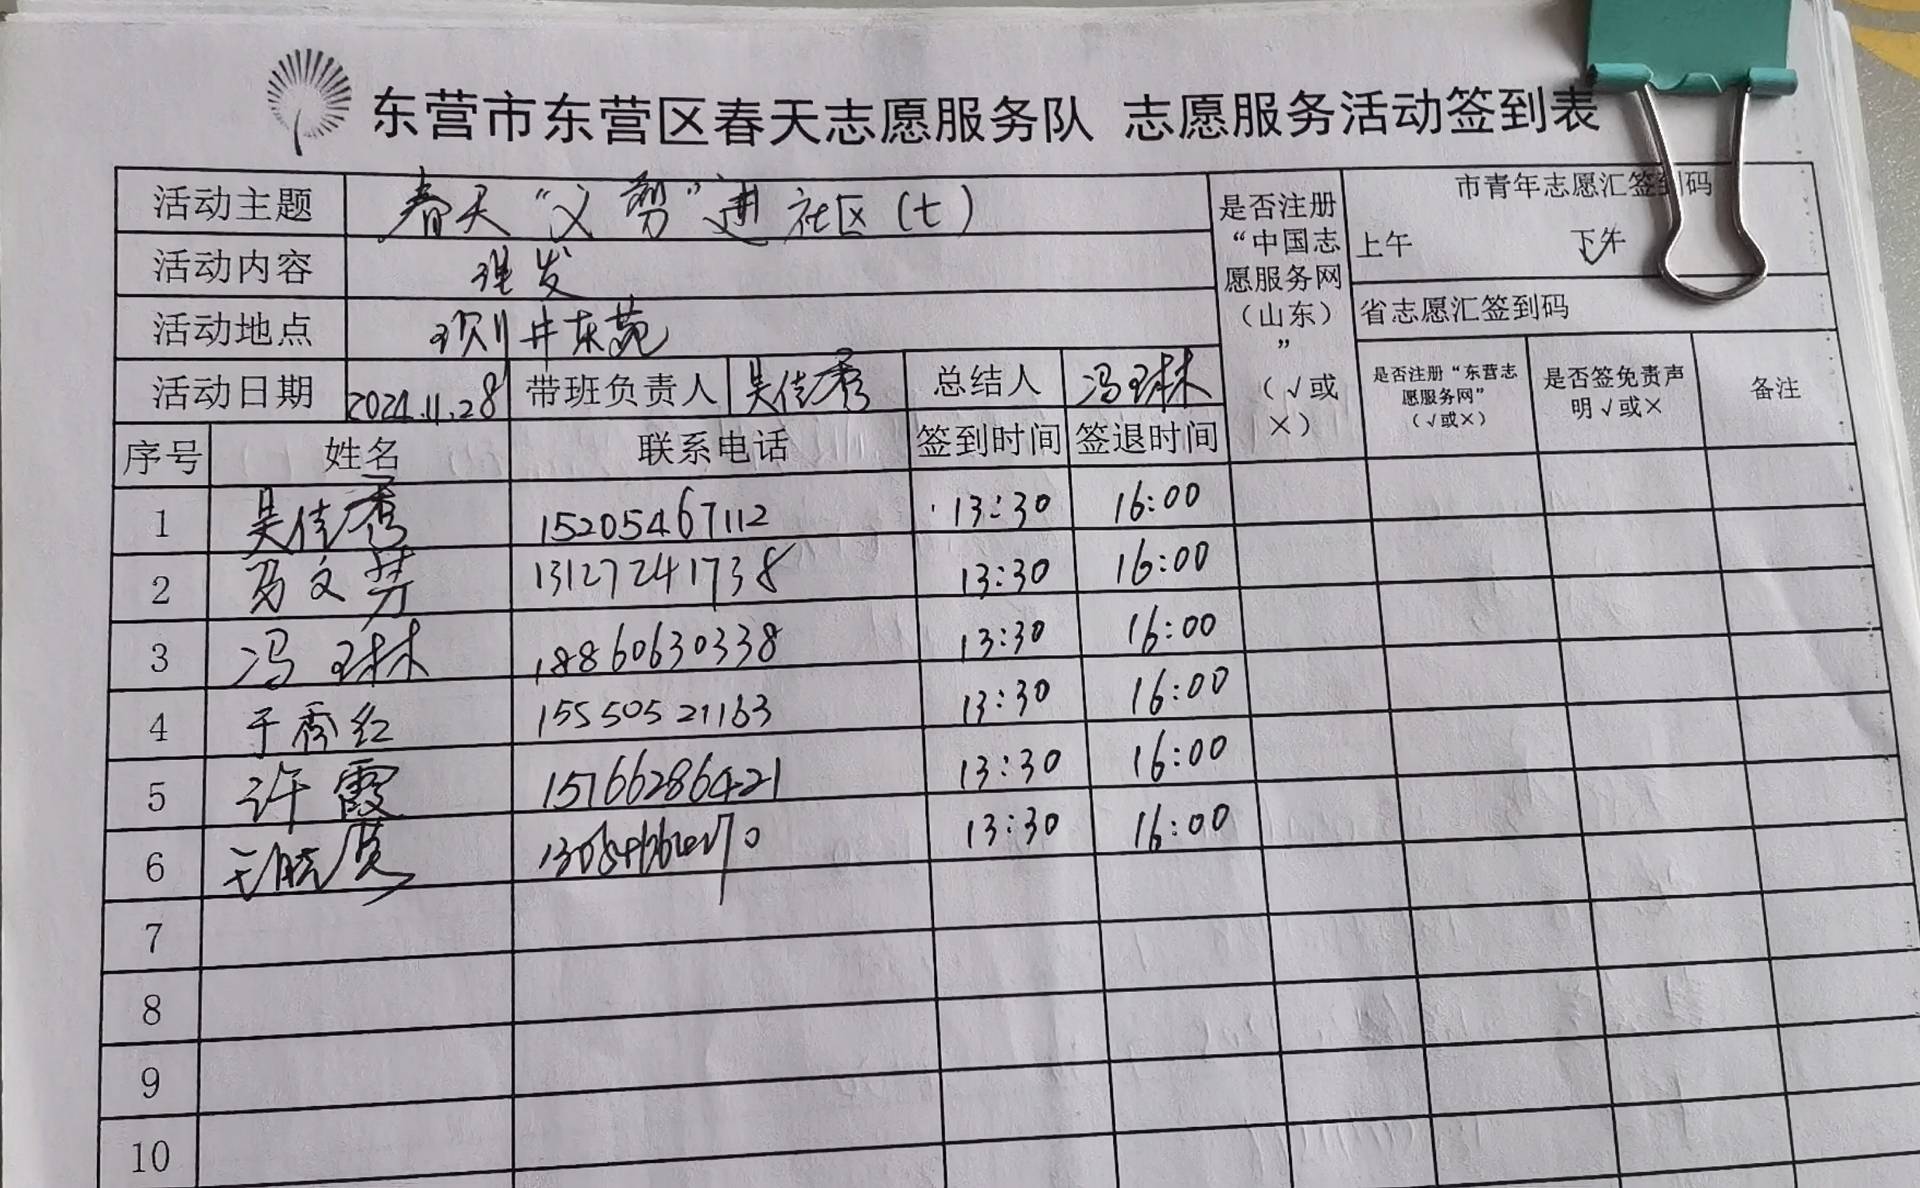 东营市东营区春天志愿服务队 志愿服务活动签到表
活动主题 春天“义剪”进社区(七)
活动内容 理发
活动地点 井东苑
活动日期 2024.11.28 带班负责人 吴佳秀 总结人 冯琳
是否注册“中国志愿服务网（山东）”（√或×）
市青年志愿汇签到码
上午 下午
省志愿汇签到码
是否注册“东营志愿服务网”（√或×） 是否签免责声明√或× 备注
序号 姓名 联系电话 签到时间 签退时间
1 吴佳秀 15205467112 13:30 16:00
2 文芳 13127241738 13:30 16:00
3 冯琳 18860630338 13:30 16:00
4 于秀红 15550521163 13:30 16:00
5 许霞 15766286421 13:30 16:00
6 13:30 16:00
7
8
9
10